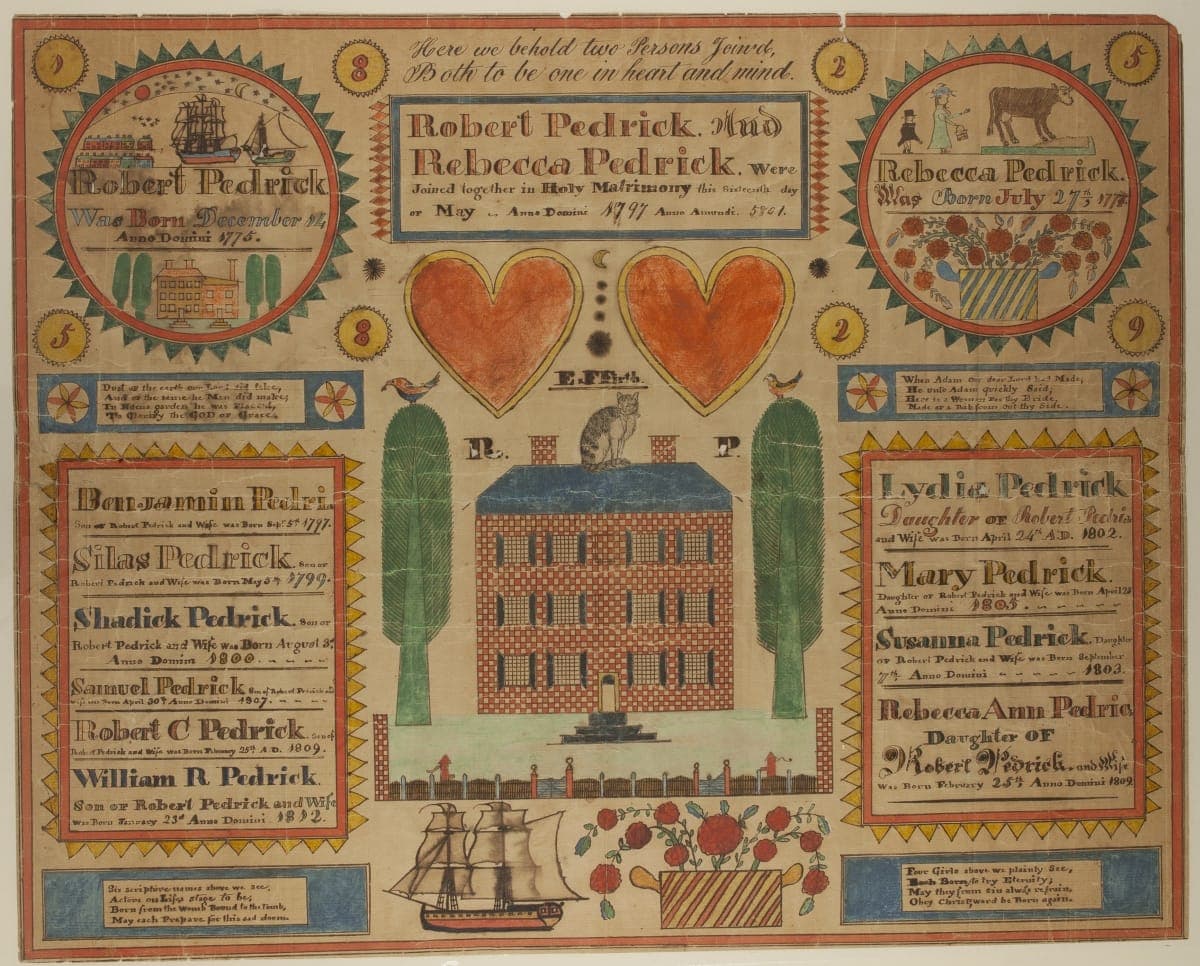 Here we behold two Persons Join'd,
Both to be one in heart and mind.
1
8
2
5
Robert Pedrick. And
Rebecca Pedrick. Were
Joined together in Holy Matrimony this Sixteenth day
of May Anno Domini 1797 Anno Amundi. 5801.
Robert Pedrick
Was Born December 14
Anno Domini 1775.
Rebecca Pedrick.
Was Born July 27th
5
8
2
9
Dust of the earth our Lord did take,
And of the same he Man did make;
In Edens garden he was Placed,
To Glorify the GOD of Grace.
When Adam Our dear Lord had Made,
He unto Adam quickly Said;
Here is a Woman For thy Bride,
Made of a Rib from Out thy Side.
E. Ffirth.
R. P.
Benjamin Pedri
Son of Robert Pedrick and Wife was Born Sept. 5th 1797.
Silas Pedrick. Son of
Robert Pedrick and Wife was Born May 5th 1799.
Shadick Pedrick. Son of
Robert Pedrick and Wife was Born August 3d
Anno Domini 1800.
Samuel Pedrick Son of Robert Pedrick and
Wife was Born April 30th Anno Domini 1807.
Robert C Pedrick. Son of
Robert Pedrick and Wife was Born February 25th A.D. 1809.
William R Pedrick.
Son of Robert Pedrick and Wife
was Born January 23d Anno Domini 1812.
Lydia Pedrick
Daughter OF Robert Pedric
and Wife was Born April 24th A.D. 1802.
Mary Pedrick.
Daughter of Robert Pedrick and Wife was Born April
Anno Domini
Susanna Pedrick. Daughter
of Robert Pedrick and Wife was Born September
7th Anno Domini 1803.
Rebecca Ann Pedric
Daughter OF
Robert Pedrick. and Wife
was Born February 25th Anno Domini 1809
Six scripture names above we see,
Actors on Lifes stage to be;
Born from the Womb Bound to the Tomb,
May each Prepare for this sad doom.
Four Girls above we plainty See,
Each Born to try Eternity;
May they from Sin always refrain,
Obey Christ,word be Born again.